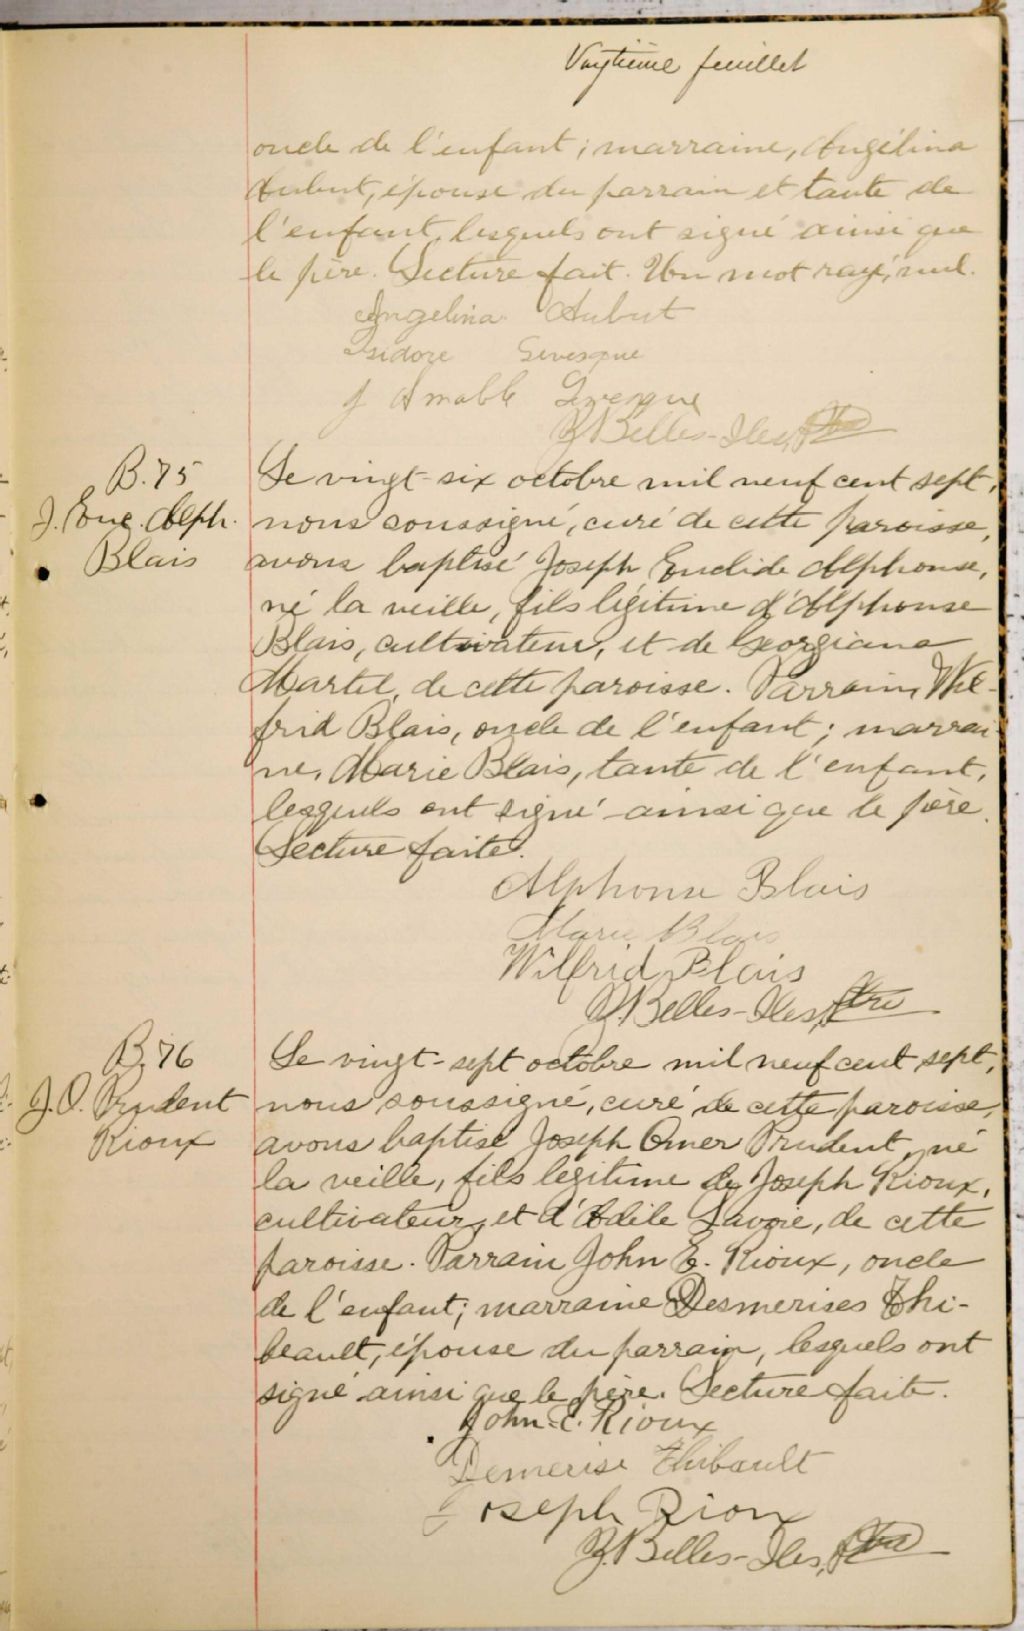 Vingtième feuillet
oncle de l'enfant; marraine, Angélina
Aubut, épouse du parrain et tante de
l'enfant, lesquels ont signé ainsi que
le père. Lecture fait. Un mot rayé, nul.
Angelina Aubut
Isidore Levesque
J Amable Levesque
Z. Belles-Iles, Ptre
B. 75
J. Euc. Alph.
Blais
Le vingt-six octobre mil neuf cent sept,
nous soussigné, curé de cette paroisse,
avons baptisé Joseph Euclide Alphonse,
né la veille, fils légitime d'Alphonse
Blais, cultivateur, et de Georgiana
Martel, de cette paroisse. Parrain, Wil-
frid Blais, oncle de l'enfant; marrai-
ne, Marie Blais, tante de l'enfant,
lesquels ont signé ainsi que le père.
Lecture faite.
Alphonse Blais
Marie Blais
Wilfrid Blais
Z. Belles-Iles, Ptre
B. 76
J. O. Prudent
Rioux
Le vingt-sept octobre mil neuf cent sept,
nous soussigné, curé de cette paroisse,
avons baptisé Joseph Omer Prudent, né
la veille, fils légitime de Joseph Rioux,
cultivateur, et d'Adèle Savoie, de cette
paroisse. Parrain John E. Rioux, oncle
de l'enfant; marraine Desmerises Thi-
beault, épouse du parrain, lesquels ont
signé ainsi que le père. Lecture faite.
John E. Rioux
Demerise Thibault
Joseph Rioux
Z. Belles-Iles, Ptre